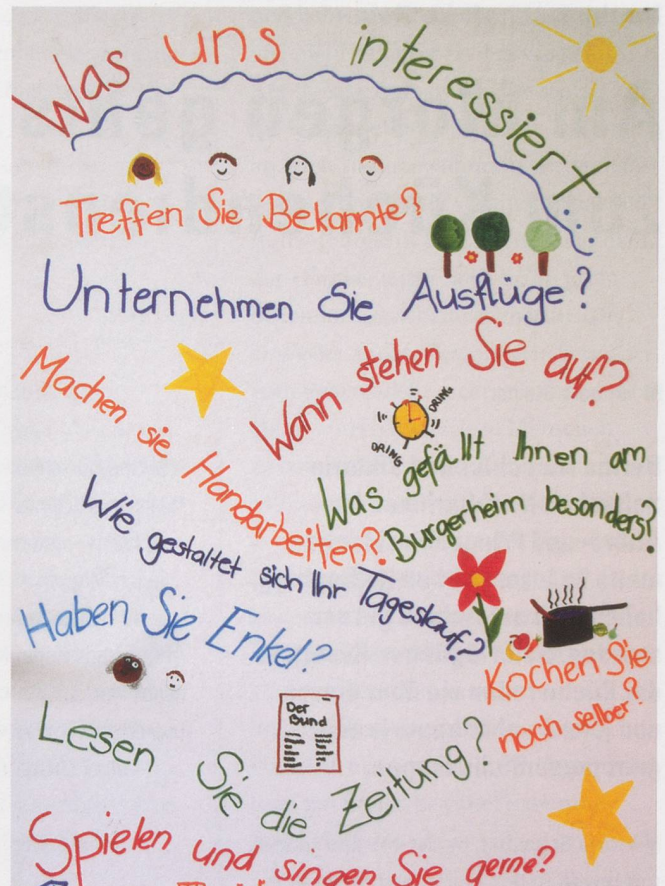 Was uns interessiert...
Treffen Sie Bekannte?
Unternehmen Sie Ausflüge?
Wann stehen Sie auf?
DRING
DRING
Machen sie Handarbeiten?
Was gefällt Ihnen am
Burgerheim besonders?
Wie gestaltet sich Ihr Tageslauf?
Haben Sie Enkel?
Kochen Sie
noch selber?
Der
Bund
Lesen Sie die Zeitung?
Spielen und singen Sie gerne?